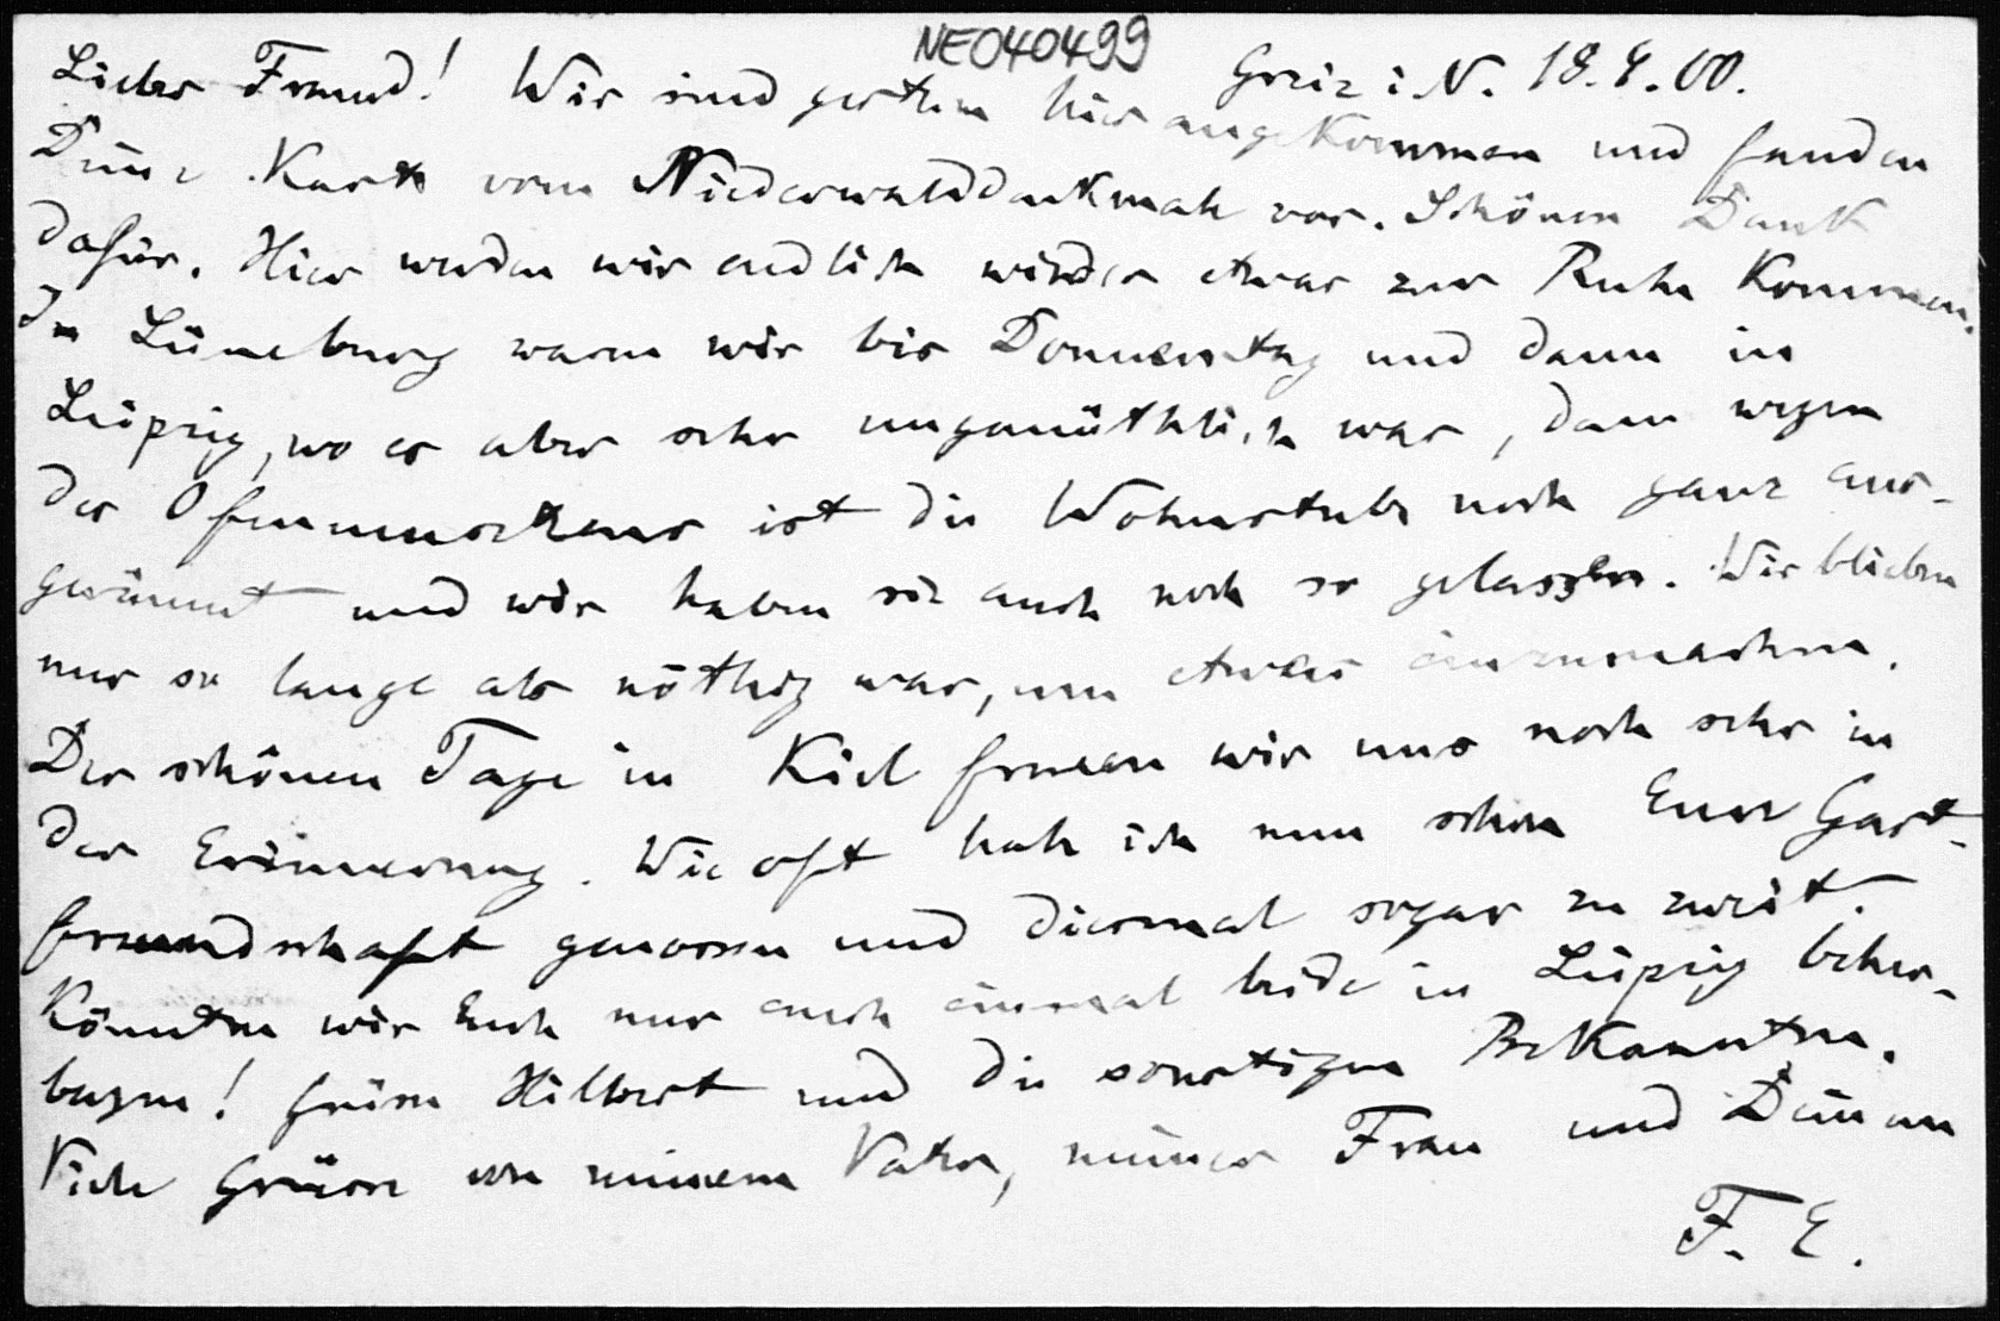 NE040499
Greiz i. N. 18.4.00.
Lieber Freund! Wir sind gestern hier angekommen und fanden
Deine Karte vom Niederwalddenkmale vor. Schönen Dank
dafür. Hier werden wir endlich wieder etwas zur Ruhe kommen.
In Lüneburg waren wir bis Donnerstag und dann in
Leipzig, wo es aber sehr ungemüthlich war, denn wegen
des ist die Wohnstube noch ganz aus-
geräumt und wir haben sie auch noch so gelassen. Wir blieben
nur so lange als nöthig war, um etwas einzumachen.
Der schönen Tage in Kiel freuen wir uns noch sehr in
der Erinnerung. Wie oft habe ich nun schon Eure Gast-
freundschaft genossen und diesmal sogar zu zweit.
Könnten wir Euch nur auch einmal beide in Leipzig beher-
bergen! Grüsse Hilbert und die sonstigen Bekannten.
Viele Grüsse von meinem Vater, meiner Frau und Deinem
F. E.